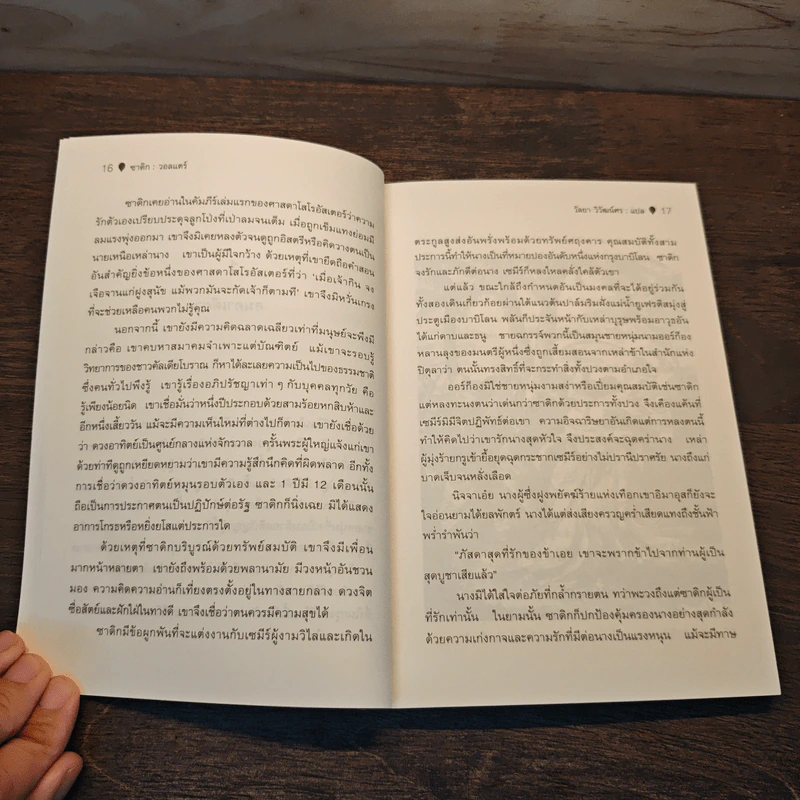 16 ซาดิก : วอลแตร์
ซาดิกเคยอ่านในคัมภีร์เล่มแรกของศาสดาโสโรอัสเตอร์ว่าความ
รักตัวเองเปรียบประดุจลูกโป่งที่เป่าลมจนเต็ม เมื่อถูกเข็มแทงย่อมมี
ลมแรงพุ่งออกมา เขาจึงมิเคยหลงตัวจนดูถูกอิสตรีหรือคิดวางตนเป็น
นายเหนือเหล่านาง เขาเป็นผู้มีใจกว้าง ด้วยเหตุที่เขายึดถือคำสอน
อันสำคัญยิ่งข้อหนึ่งของศาสดาโสโรอัสเตอร์ที่ว่า 'เมื่อเจ้ากิน จง
เจือจานแก่ฝูงสุนัข แม้พวกมันจะกัดเจ้าก็ตามที' เขาจึงมิหวั่นเกรง
ที่จะช่วยเหลือคนพวกไม่รู้คุณ
นอกจากนี้ เขายังมีความคิดฉลาดเฉลียวเท่าที่มนุษย์จะพึงมี
กล่าวคือ เขาคบหาสมาคมจำเพาะแต่บัณฑิตย์ แม้เขาจะรอบรู้
วิทยาการของชาวคัลเดียโบราณ ก็หาได้ละเลยความเป็นไปของธรรมชาติ
ซึ่งคนทั่วไปพึงรู้ เขารู้เรื่องอภิปรัชญาเท่า ๆ กับบุคคลทุกวัย คือ
รู้เพียงน้อยนิด เขาเชื่อมั่นว่าหนึ่งปีประกอบด้วยสามร้อยหกสิบห้าและ
อีกหนึ่งเสี้ยววัน แม้จะมีความเห็นใหม่ที่ต่างไปก็ตาม เขายังเชื่อด้วย
ว่า ดวงอาทิตย์เป็นศูนย์กลางแห่งจักรวาล ครั้นพระผู้ใหญ่แจ้งแก่เขา
ด้วยท่าทีดูถูกเหยียดหยามว่าเขามีความรู้สึกนึกคิดที่ผิดพลาด อีกทั้ง
การเชื่อว่าดวงอาทิตย์หมุนรอบตัวเอง และ 1 ปีมี 12 เดือนนั้น
ถือเป็นการประกาศตนเป็นปฏิปักษ์ต่อรัฐ ซาดิกก็นิ่งเฉย มิได้แสดง
อาการโกรธหรือหยิ่งยโสแต่ประการใด
ด้วยเหตุที่ซาดิกบริบูรณ์ด้วยทรัพย์สมบัติ เขาจึงมีเพื่อน
มากหน้าหลายตา เขายังถึงพร้อมด้วยพลานามัย มีวงหน้าอันชวน
มอง ความคิดความอ่านก็เที่ยงตรงตั้งอยู่ในทางสายกลาง ดวงจิต
ซื่อสัตย์และฝักใฝ่ในทางดี เขาจึงเชื่อว่าตนควรมีความสุขได้
ซาดิกมีข้อผูกพันที่จะแต่งงานกับเซมีร์ผู้งามวิไลและเกิดใน
วัลยา วิวัฒน์ศร : แปล 17
ตระกูลสูงส่งอันพรั่งพร้อมด้วยทรัพย์ศฤงคาร คุณสมบัติทั้งสาม
ประการนี้ทำให้นางเป็นที่หมายปองอันดับหนึ่งแห่งกรุงบาบิโลน ซาดิก
จงรักและภักดีต่อนาง เซมีร์ก็หลงใหลคลั่งไคล้ตัวเขา
แต่แล้ว ขณะใกล้ถึงกำหนดอันเป็นมงคลที่จะได้อยู่ร่วมกัน
ทั้งสองเดินเกี้ยวก้อยผ่านใต้แนวต้นปาล์มริมฝั่งแม่น้ำยูเฟรติสมุ่งสู่
ประตูเมืองบาบิโลน พลันก็ประจันหน้ากับเหล่าบุรุษพร้อมอาวุธอัน
ได้แก่ดาบและธนู ชายฉกรรจ์พวกนี้เป็นสมุนชายหนุ่มนามออร์ก็อง
หลานลุงของมนตรีผู้หนึ่งซึ่งถูกเสี้ยมสอนจากเหล่าข้าในสำนักแห่ง
ปิตุลาว่า ตนนั้นทรงสิทธิ์ที่จะกระทำสิ่งทั้งปวงตามอำเภอใจ
ออร์ก็องมิใช่ชายหนุ่มงามสง่าหรือเปี่ยมคุณสมบัติเช่นซาดิก
แต่หลงทะนงตนว่าเด่นกว่าซาดิกด้วยประการทั้งปวง จึงเคืองแค้นที่
เซมีร์มิมีจิตปฏิพัทธ์ต่อเขา ความอิจฉาริษยาอันเกิดแต่การหลงตนนี้
ทำให้คิดไปว่าเขารักนางสุดหัวใจ จึงประสงค์จะฉุดคร่านาง เหล่า
ผู้มุ่งร้ายกรูเข้ายื้อยุดฉุดกระชากเซมีร์อย่างไม่ปรานีปราศรัย นางถึงแก่
บาดเจ็บจนหลั่งเลือด
นิจจาเอ๋ย นางผู้ซึ่งฝูงพยัคฆ์ร้ายแห่งเทือกเขาอิมาอุสก็ยังจะ
ใจอ่อนยามได้ยลพักตร์ นางได้แต่ส่งเสียงครวญคร่ำเสียดแทงถึงชั้นฟ้า
พร่ำรำพันว่า
"ภัสดาสุดที่รักของข้าเอย เขาจะพรากข้าไปจากท่านผู้เป็น
สุดบูชาเสียแล้ว"
นางมิได้ใส่ใจต่อภัยที่กล้ำกรายตน ทว่าพะวงถึงแต่ซาดิกผู้เป็น
ที่รักเท่านั้น ในยามนั้น ซาดิกก็ปกป้องคุ้มครองนางอย่างสุดกำลัง
ด้วยความเก่งกาจและความรักที่มีต่อนางเป็นแรงหนุน แม้จะมีทาษ